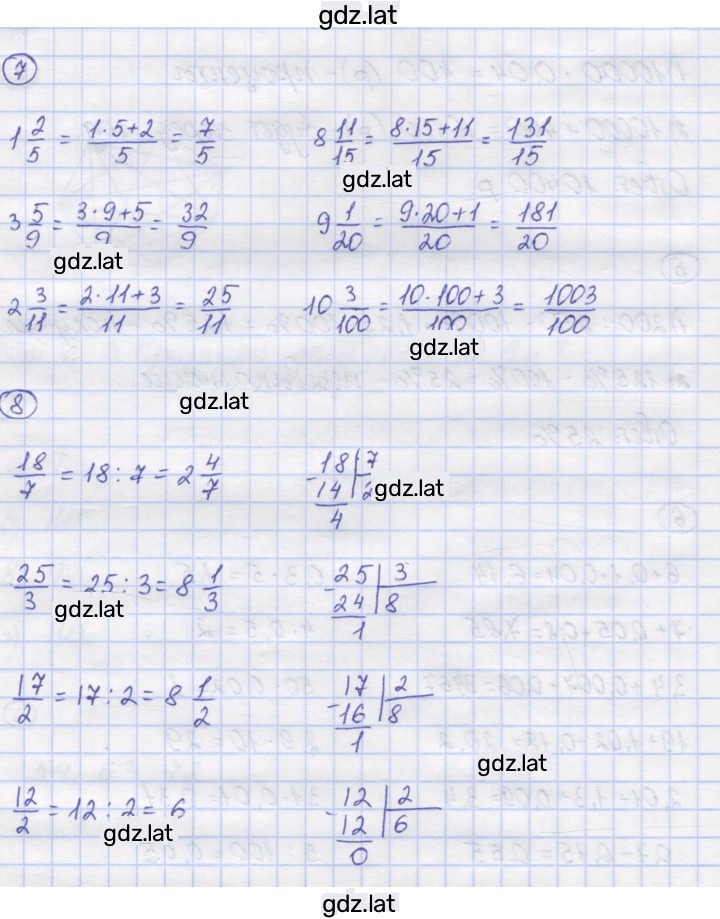 gdz.lat
7
1 2/5 = (1·5+2)/5 = 7/5    8 11/15 = (8·15+11)/15 = 131/15
gdz.lat
3 5/9 = (3·9+5)/9 = 32/9    9 1/20 = (9·20+1)/20 = 181/20
gdz.lat
2 3/11 = (2·11+3)/11 = 25/11    10 3/100 = (10·100+3)/100 = 1003/100
gdz.lat
8
gdz.lat
18/7 = 18:7 = 2 4/7    18 | 7
-14 | 2 gdz.lat
4
25/3 = 25:3 = 8 1/3    25 | 3
gdz.lat    -24 | 8
1
17/2 = 17:2 = 8 1/2    17 | 2
-16 | 8
1
gdz.lat
12/2 = 12:2 = 6    12 | 2
gdz.lat    -12 | 6
0
gdz.lat